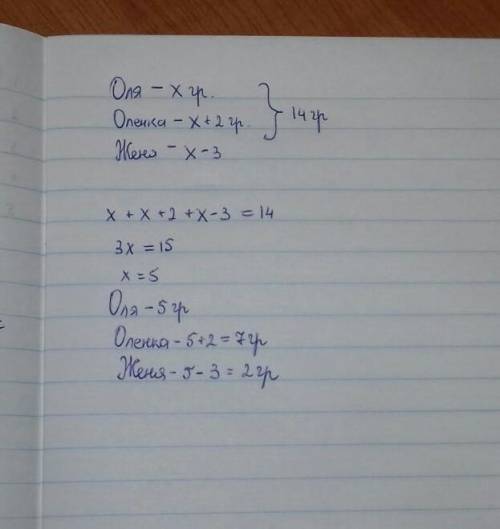 Оля - x гр.
Оленка - x + 2 гр. } 14 гр
Женя - x - 3
x + x + 2 + x - 3 = 14
3x = 15
x = 5
Оля - 5 гр
Оленка - 5 + 2 = 7 гр
Женя - 5 - 3 = 2 гр